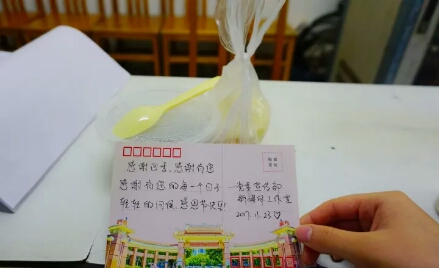 感谢过去,感谢有您
感谢有您的每一个日子
轻轻的问候,感恩节快乐!
—党委宣传部
新媒体工作室
2017.11.23